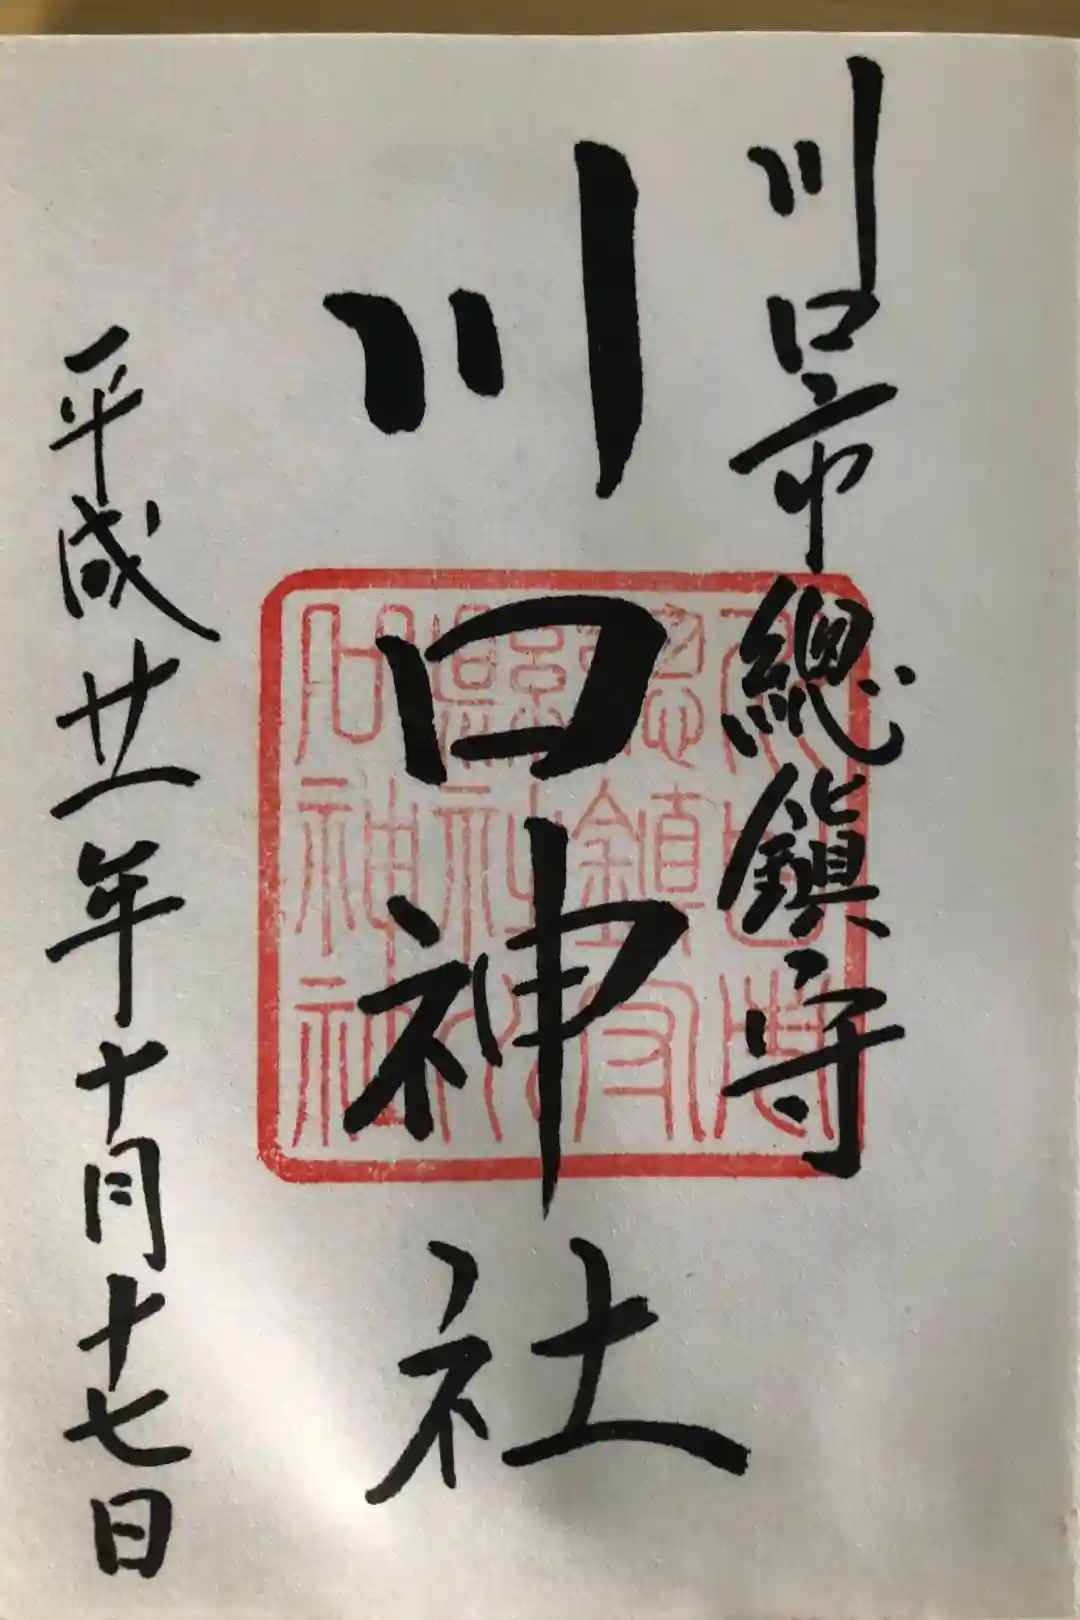 川口市總鎮守
川口神社
平成廿一年十月十七日
川口市
總鎮守
縣社川
口神社